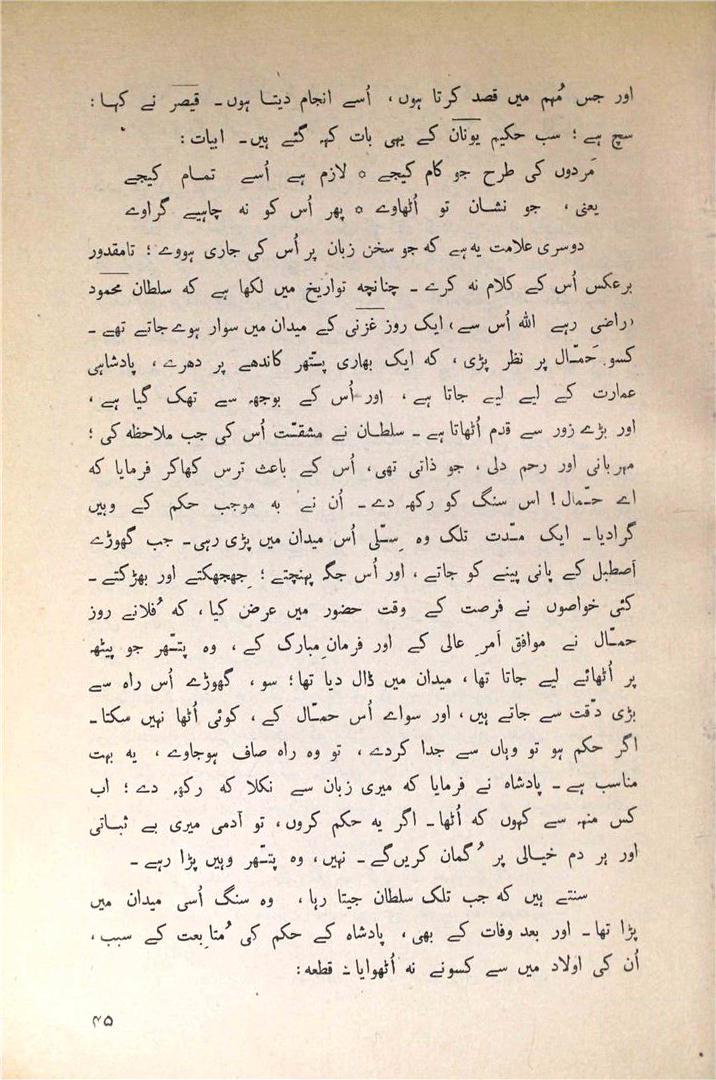 اور جس مُہم میں قصد کرتا ہوں، اُسے انجام دیتا ہوں۔ قیصر نے کہا:
سچ ہے؛ سب حکیم یونان کے یہی بات کہہ گئے ہیں۔ ابیات:
مَردوں کی طرح جو کام کیجے ٥ لازم ہے اُسے تمام کیجے
یعنی، جو نشان تو اُٹھاوے ٥ پھر اُس کو نہ چاہیے گراوے
دوسری علامت یہ ہے کہ جو سخن زبان پر اُس کی جاری ہووے؛ تامقدور
برعکس اُس کے کلام نہ کرے۔ چنانچہ تواریخ میں لکھا ہے کہ سلطان محمود
،راضی رہے اللہ اُس سے، ایک روز غزنی کے میدان میں سوار ہوے جاتے تھے۔
کسو حَمّال پر نظر پڑی، کہ ایک بھاری پتّھر کاندھے پر دھرے، پادشاہی
عمارت کے لیے لیے جاتا ہے، اور اُس کے بوجھ سے تھک گیا ہے،
اور بڑے زور سے قدم اُٹھاتا ہے۔ سلطان نے مشقّت اُس کی جب ملاحظہ کی؛
مہربانی اور رحم دلی، جو ذاتی تھی، اُس کے باعث ترس کھاکر فرمایا کہ
اے حمّال! اس سنگ کو رکھ دے۔ اُن نے بہ موجب حکم کے وہیں
گرادیا۔ ایک مدّت تلک وہ سِلّی اُس میدان میں پڑی رہی۔ جب گھوڑے
اَصطبل کے پانی پینے کو جاتے، اور اُس جگہ پہنچتے؛ جِھجھکتے اور بھڑکتے۔
کئی خواصوں نے فرصت کے وقت حضور میں عرض کیا، کہ فُلانے روز
حمّال نے موافق اَمرِ عالی کے اور فرمانِ مبارک کے، وہ پتّھر جو پیٹھ
پر اُٹھائے لیے جاتا تھا، میدان میں ڈال دیا تھا؛ سو، گھوڑے اُس راہ سے
بڑی دقّت سے جاتے ہیں، اور سواے اُس حمّال کے، کوئی اُٹھا نہیں سکتا۔
اگر حکم ہو تو وہاں سے جدا کردے، تو وہ راہ صاف ہوجاوے، یہ بہت
مناسب ہے۔ پادشاہ نے فرمایا کہ میری زبان سے نکلا کہ رکھ دے؛ اب
کس منہ سے کہوں کہ اُٹھا۔ اگر یہ حکم کروں، تو آدمی میری بے ثباتی
اور ہر دم خیالی پر گُمان کریں گے۔ نہیں، وہ پتّھر وہیں پڑا رہے۔
سنتے ہیں کہ جب تلک سلطان جیتا رہا، وہ سنگ اُسی میدان میں
پڑا تھا۔ اور بعد وفات کے بھی، پادشاہ کے حکم کی مُتابِعت کے سبب،
اُن کی اولاد میں سے کسونے نہ اُٹھوایا۔ قطعہ:
۴۵